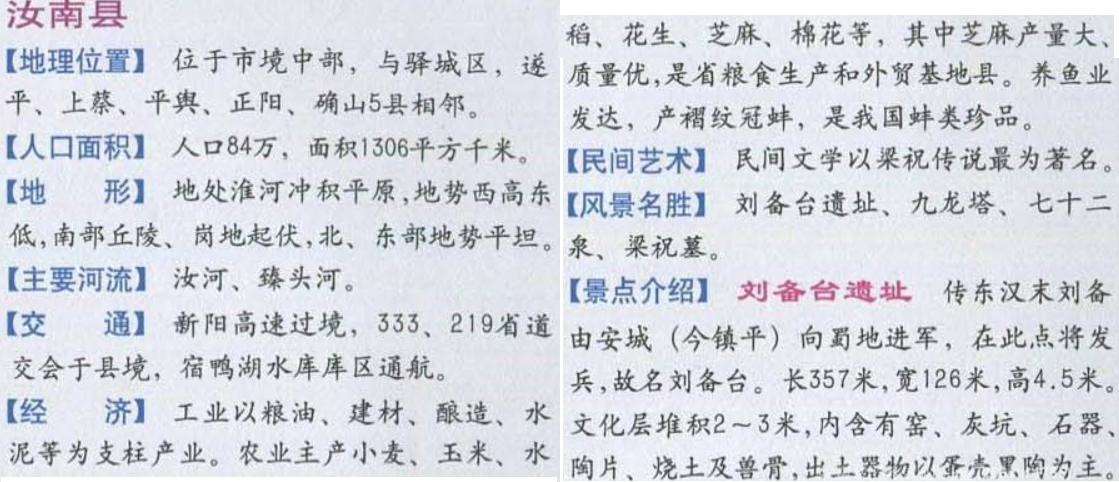 汝南县
【地理位置】 位于市境中部，与驿城区，遂
平、上蔡、平舆、正阳、确山5县相邻。
【人口面积】 人口84万，面积1306平方千米。
【地　　形】 地处淮河冲积平原,地势西高东
低,南部丘陵、岗地起伏,北、东部地势平坦。
【主要河流】 汝河、臻头河。
【交　　通】 新阳高速过境，333、219省道
交会于县境，宿鸭湖水库库区通航。
【经　　济】 工业以粮油、建材、酿造、水
泥等为支柱产业。农业主产小麦、玉米、水
稻、花生、芝麻、棉花等，其中芝麻产量大、
质量优,是省粮食生产和外贸基地县。养鱼业
发达，产褶纹冠蚌，是我国蚌类珍品。
【民间艺术】 民间文学以梁祝传说最为著名。
【风景名胜】 刘备台遗址、九龙塔、七十二
泉、梁祝墓。
【景点介绍】 刘备台遗址 传东汉末刘备
由安城（今镇平）向蜀地进军，在此点将发
兵,故名刘备台。长357米,宽126米,高4.5米。
文化层堆积2～3米,内含有窑、灰坑、石器、
陶片、烧土及兽骨,出土器物以蛋壳黑陶为主。